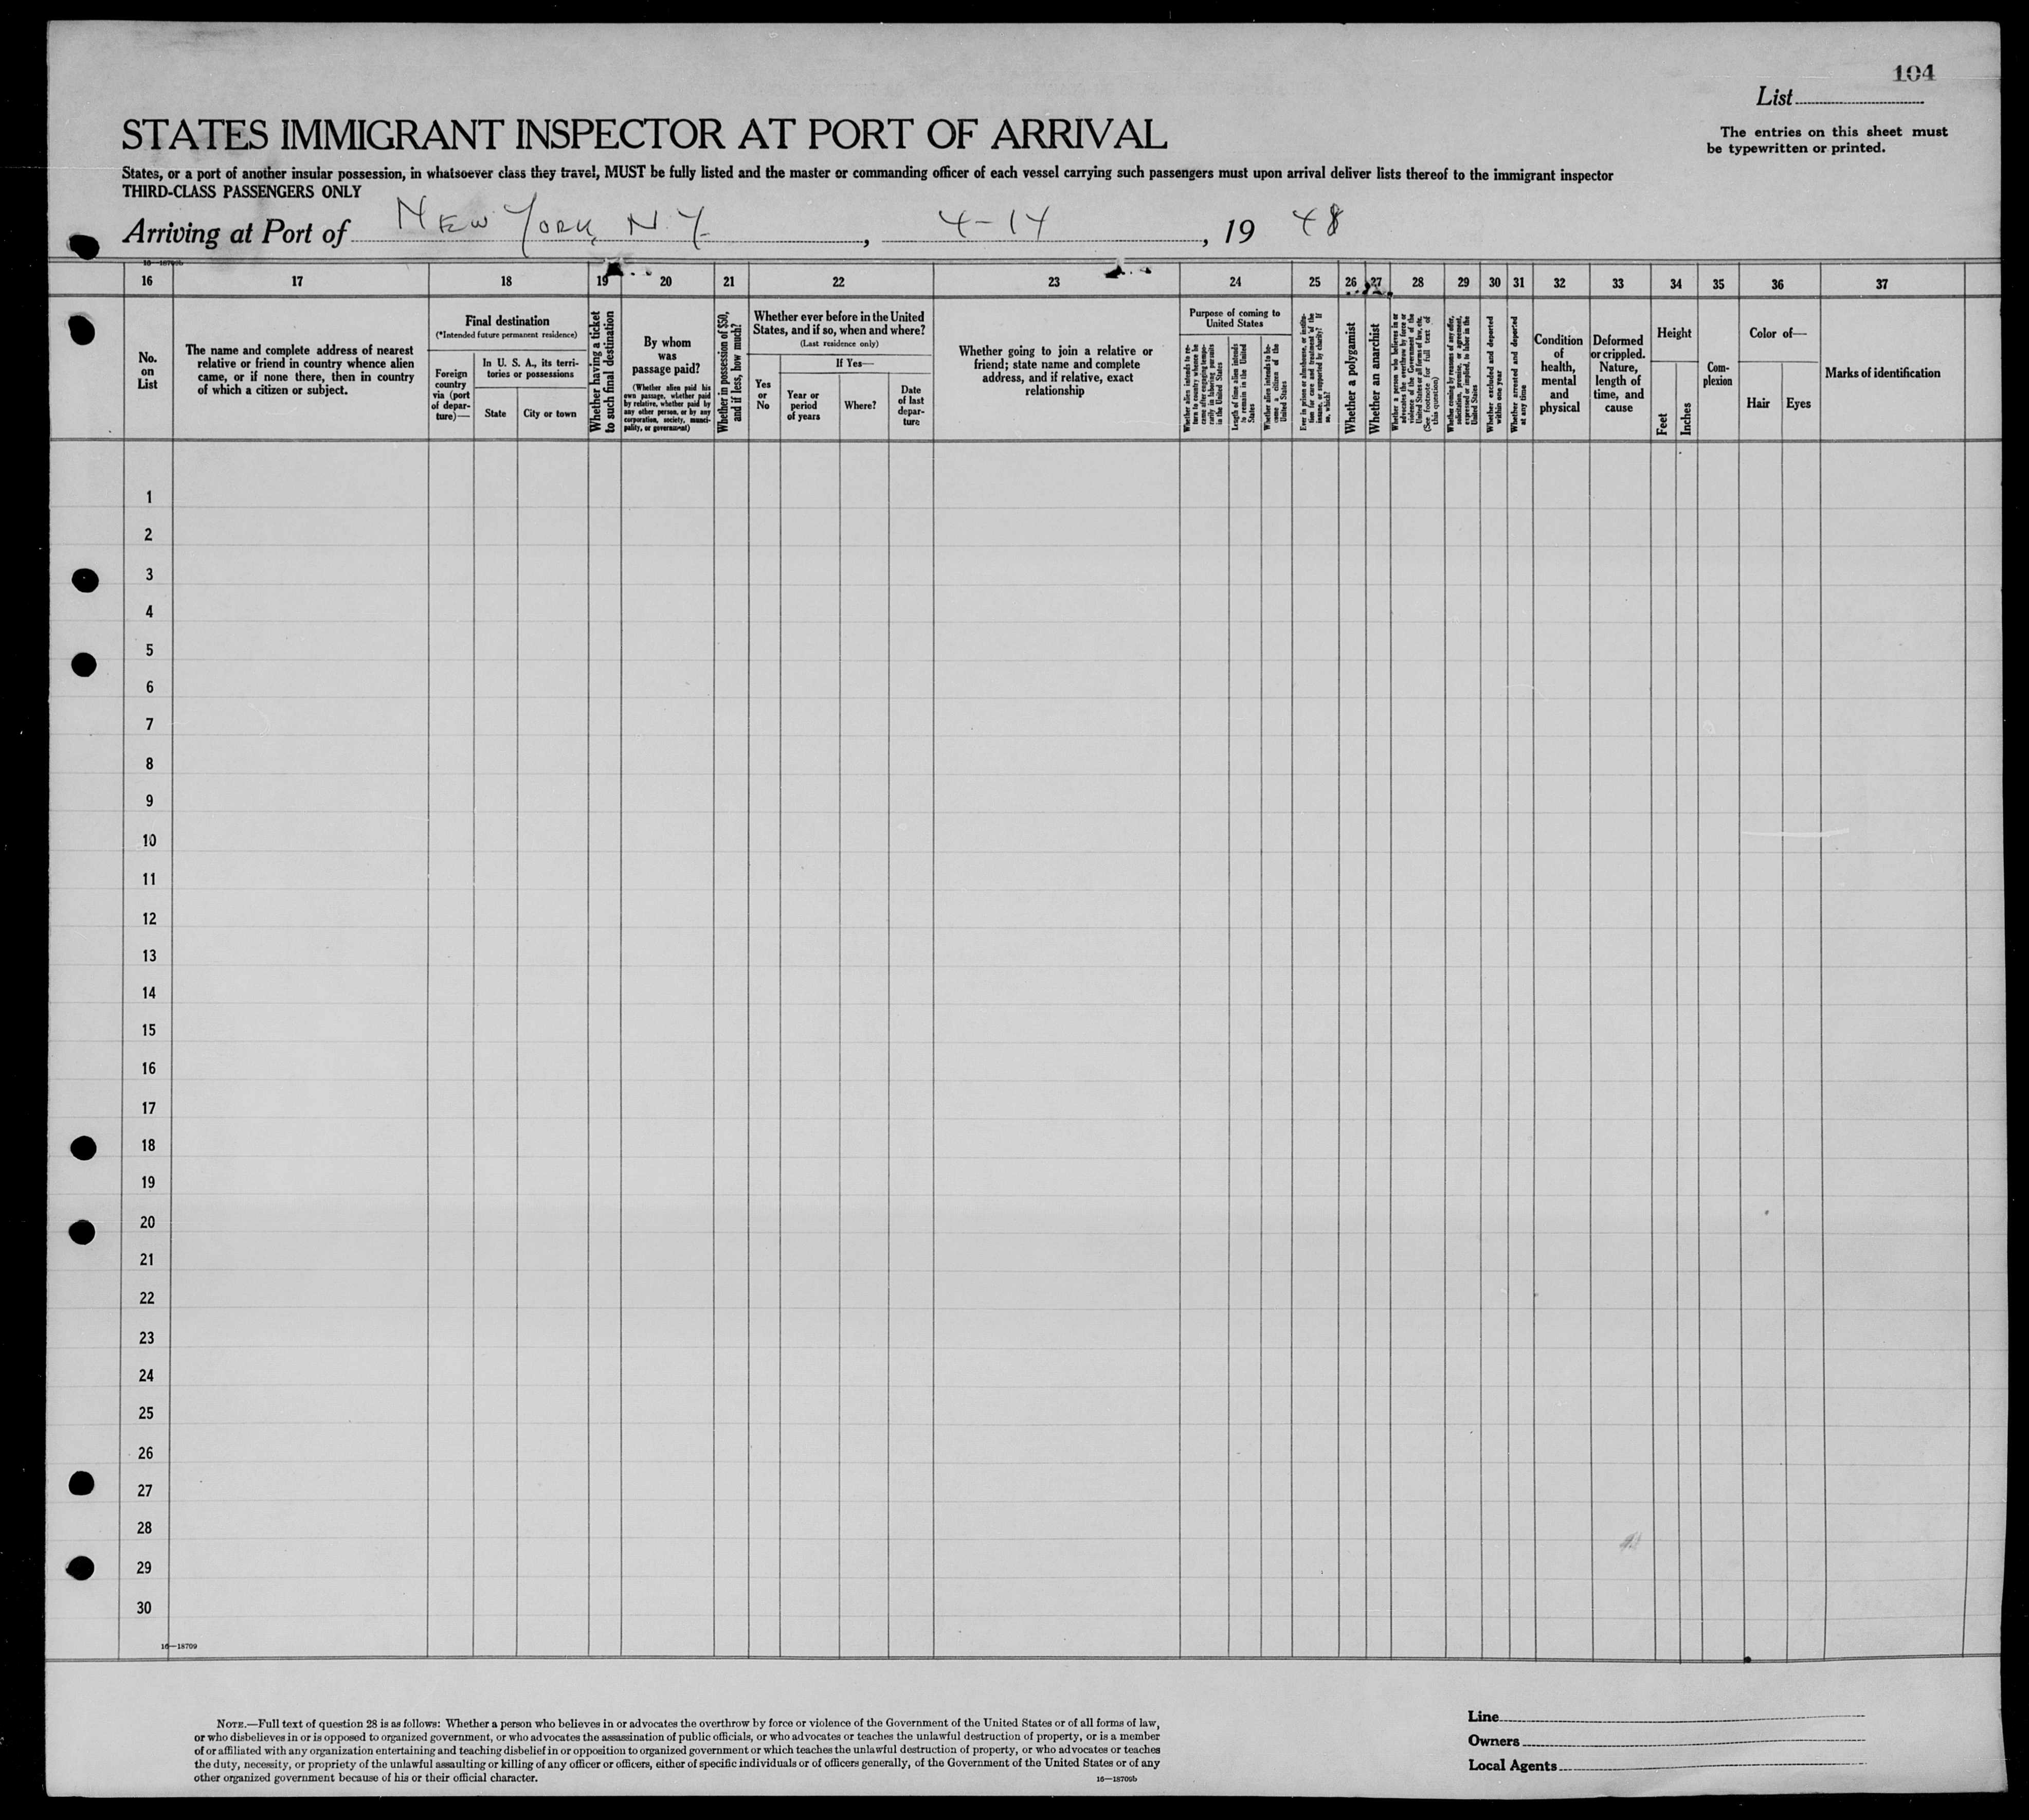 104
List
The entries on this sheet must
be typewritten or printed.
STATES IMMIGRANT INSPECTOR AT PORT OF ARRIVAL
States, or a port of another insular possession, in whatsoever class they travel, MUST be fully listed and the master or commanding officer of each vessel carrying such passengers must upon arrival deliver lists thereof to the immigrant inspector
THIRD-CLASS PASSENGERS ONLY
Arriving at Port of New York, N.Y. , 4-14 , 19 48
16—18709b
16 17 18 19 20 21 22 23 24 25 26 27 28 29 30 31 32 33 34 35 36 37
No.
on
List
The name and complete address of nearest
relative or friend in country whence alien
came, or if none there, then in country
of which a citizen or subject.
Final destination
(*Intended future permanent residence)
Foreign
country
via (port
of depar-
ture)—
In U. S. A., its terri-
tories or possessions
State
City or town
Whether having a ticket
to such final destination
By whom
was
passage paid?
(Whether alien paid his
own passage, whether paid
by relative, whether paid by
any other person, or by any
corporation, society, munici-
pality, or government)
Whether in possession of $50,
and if less, how much?
Whether ever before in the United
States, and if so, when and where?
(Last residence only)
Yes
or
No
If Yes—
Year or
period
of years
Where?
Date
of last
depar-
ture
Whether going to join a relative or
friend; state name and complete
address, and if relative, exact
relationship
Purpose of coming to
United States
Whether alien intends to re-
turn to country whence he
came after engaging tempo-
rarily in laboring pursuits
in the United States
Length of time alien intends
to remain in the United
States
Whether alien intends to be-
come a citizen of the
United States
Ever in prison or almshouse, or institu-
tion for care and treatment of the
insane, or supported by charity? If
so, which?
Whether a polygamist
Whether an anarchist
Whether a person who believes in or
advocates the overthrow by force or
violence of the Government of the
United States or all forms of law, etc.
(See footnote for full text of
this question)
Whether coming by reasons of any offer,
solicitation, promise, or agreement,
expressed or implied, to labor in the
United States
Whether excluded and deported
within one year
Whether arrested and deported
at any time
Condition
of
health,
mental
and
physical
Deformed
or crippled.
Nature,
length of
time, and
cause
Height
Feet
Inches
Com-
plexion
Color of—
Hair
Eyes
Marks of identification
1
2
3
4
5
6
7
8
9
10
11
12
13
14
15
16
17
18
19
20
21
22
23
24
25
26
27
28
29
30
16—18709
NOTE.—Full text of question 28 is as follows: Whether a person who believes in or advocates the overthrow by force or violence of the Government of the United States or of all forms of law,
or who disbelieves in or is opposed to organized government, or who advocates the assassination of public officials, or who advocates or teaches the unlawful destruction of property, or is a member
of or affiliated with any organization entertaining and teaching disbelief in or opposition to organized government or which teaches the unlawful destruction of property, or who advocates or teaches
the duty, necessity, or propriety of the unlawful assaulting or killing of any officer or officers, either of specific individuals or of officers generally, of the Government of the United States or of any
other organized government because of his or their official character.
16—18709b
Line
Owners
Local Agents